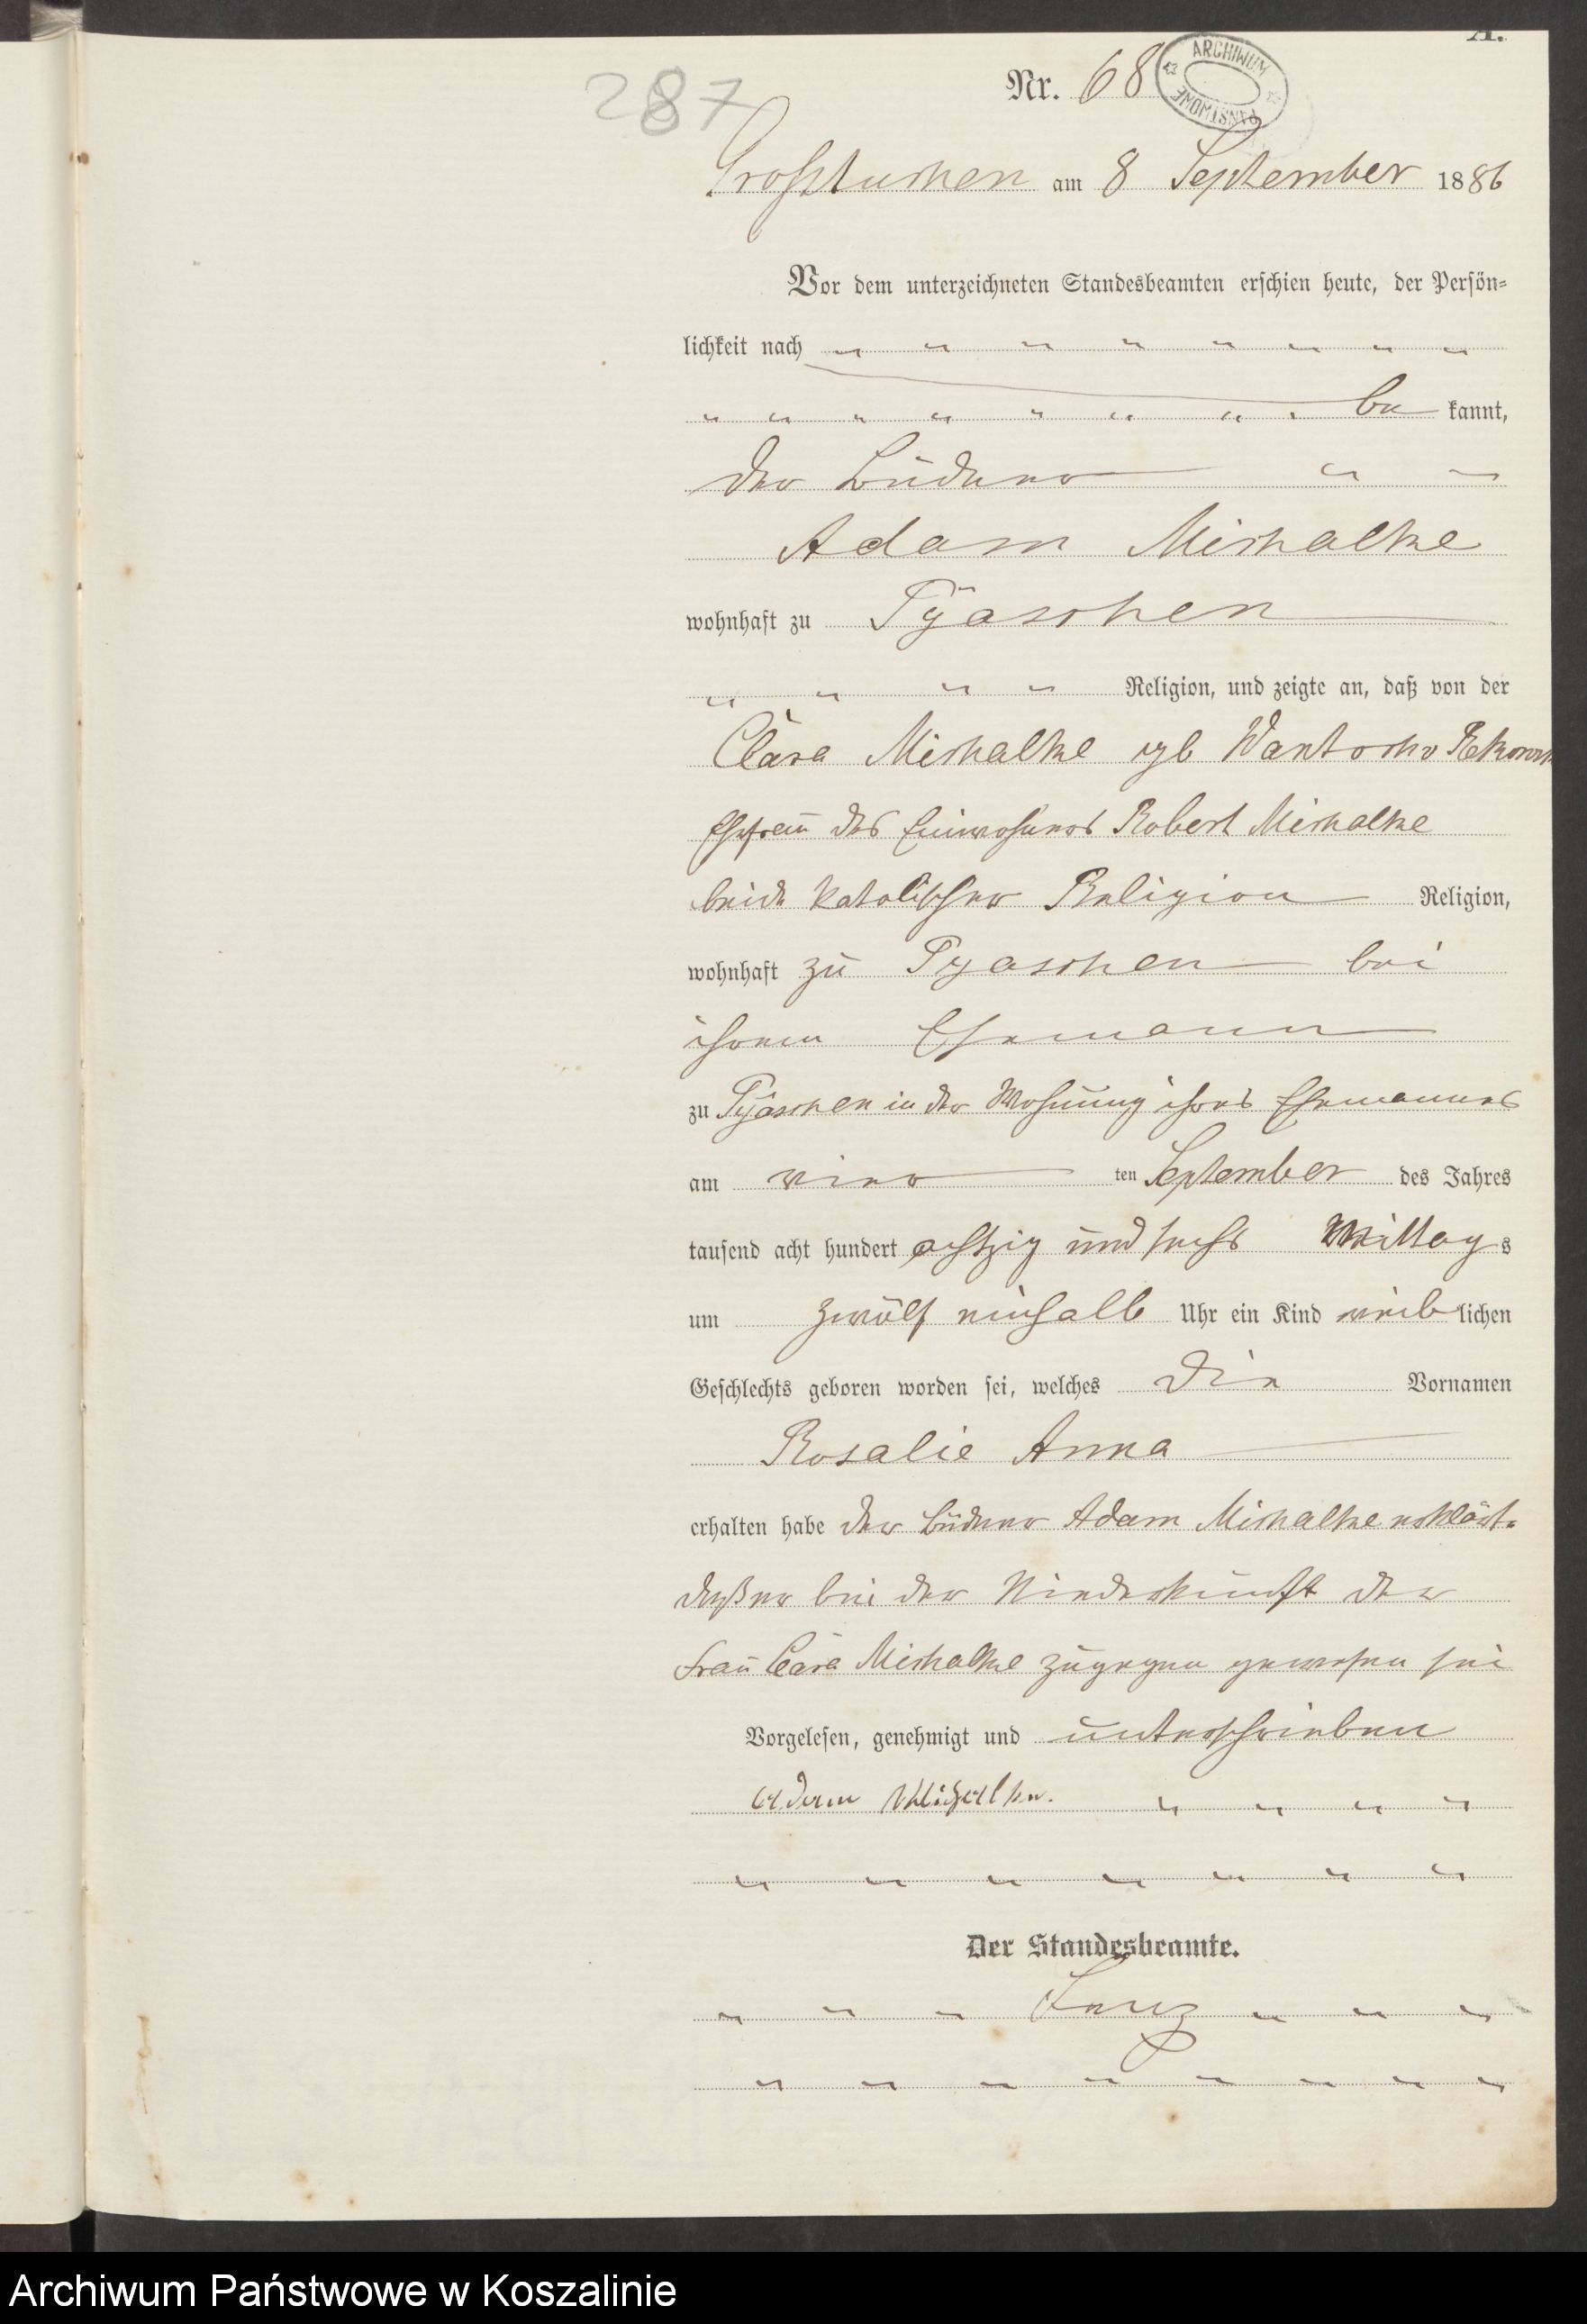 A.
287
Nr. 68
ARCHIWUM PAŃSTWOWE
Grosstuchen am 8 September 1886
Vor dem unterzeichneten Standesbeamten erschien heute, der Persön-
lichkeit nach
be kannt,
der Büdner
Adam Michalke
wohnhaft zu Pyaschen
Religion, und zeigte an, daß von der
Clara Michalke geb
Ehefrau des Einwohners Robert Michalke
beide katolischer Religion Religion,
wohnhaft zu Pyaschen bei
ihrem Ehemann
zu Pyaschen in der Wohnung ihres Ehemannes
am vier ten September des Jahres
tausend acht hundert achtzig und sechs Mittag s
um zwölf einhalb Uhr ein Kind weib lichen
Geschlechts geboren worden sei, welches die Vornamen
Rosalie Anna
erhalten habe der Büdner Adam Michalke erklärt
daß er bei der Niederkunft der
Frau Clara Michalke zugegen gewesen sei
Vorgelesen, genehmigt und unterschrieben
Adam Michalke.
Der Standesbeamte.
Archiwum Państwowe w Koszalinie